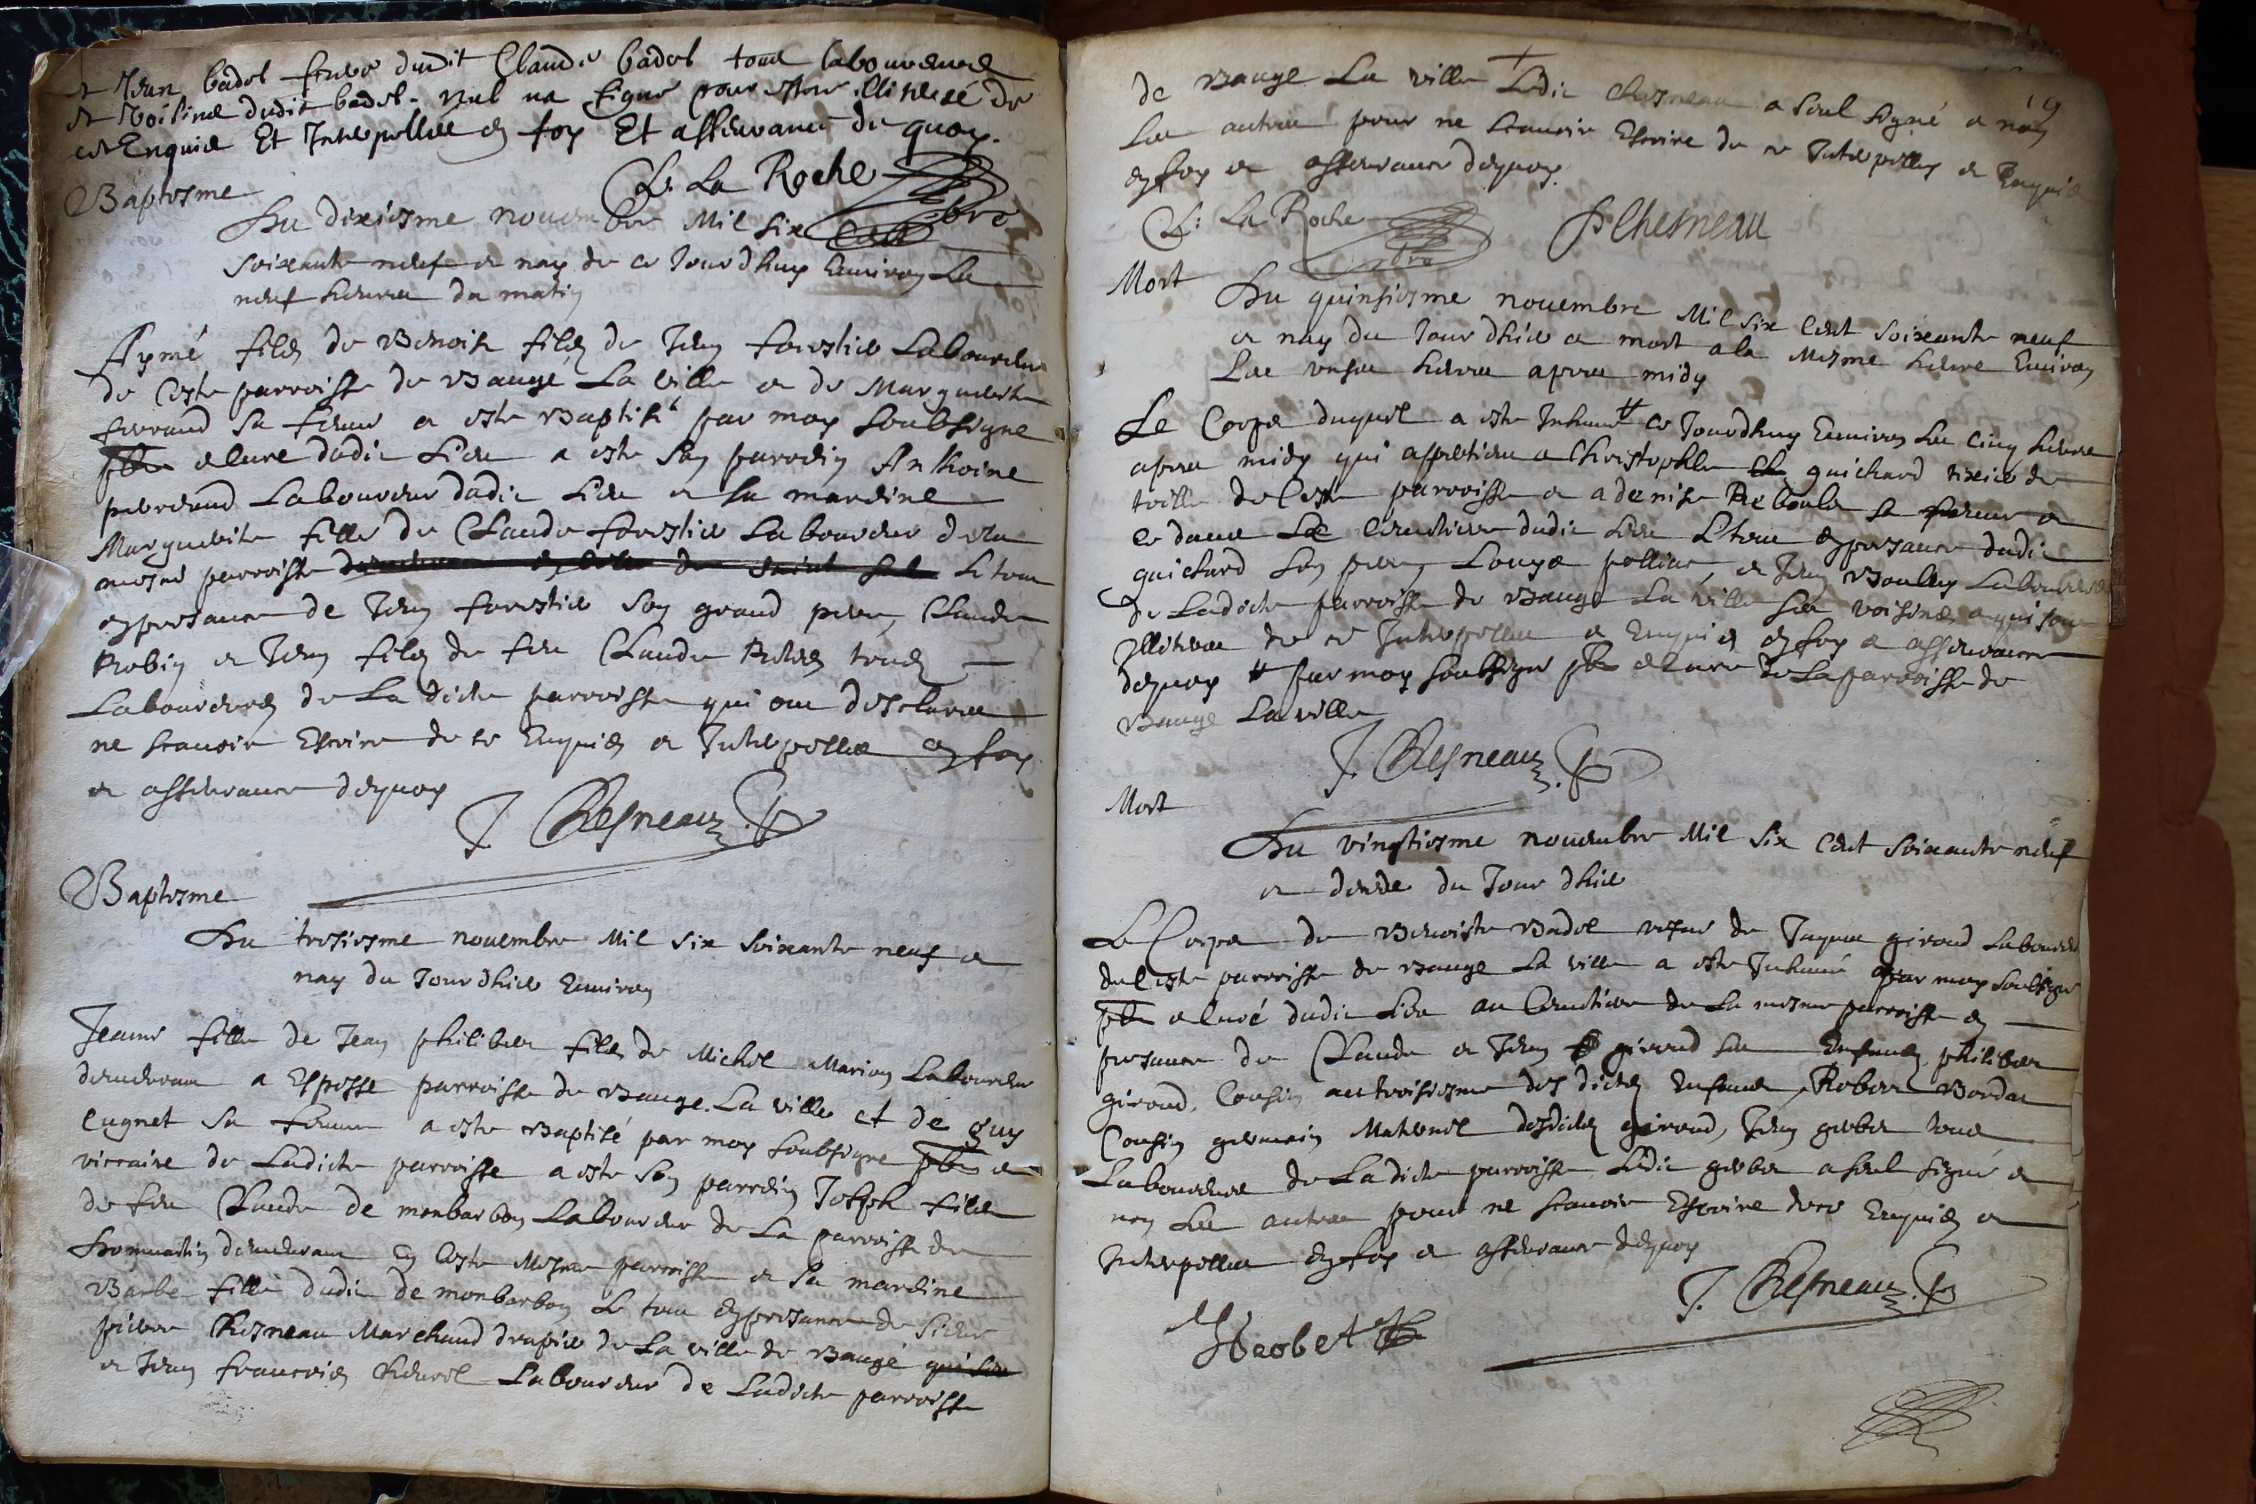 et Jean badel frere dudit Claude badel tous laboureurs
et voisins dudit badel. nul na signé pour estre illiterés de
ce Enquis Et Interpellés en foy Et asseurance de quoy.
C. La Roche pbre
Baptesme
Du dixiesme novembre Mil six cent
soixante neuf et nay de ce Jourdhuy Environ Les
neuf heures du matin
Aymé filz de Benoist filz de Jean forestier Laboureur
de Ceste parroisse de Baugé La ville et de Marguerite
ferrand sa femme a este Baptisé par moy soubsigne
pbre et Cure dudit Lieu a este son parrein Anthoine
perraud Laboureur dudit Lieu et sa mareine
Marguerite fille de Claude forestier Laboureur de la
mesme parroisse Le tout
en presance de Jean forestier son grand pere, Claude
Robin et Jean filz de feu Claude tous
Laboureurs de La dicte parroisse qui ont desclares
ne scauoir Escrire de ce Enquis et Interpelles en foy
et asseurance dequoy
J. Chesneau
Baptesme
Du tresiesme nouembre Mil six soixante neuf et
nay du Jourdhier Environ
Jeanne fille de Jean philiber filz de Michel Marion Laboureur
demeurant a Espesse parroisse de Bauge La ville et de guy
Cugnet sa femme a este Baptisé par moy soubsigne pbre et
viccaire de Ladicte parroisse a este son parrein Joseph filz
de feu Claude de monbarbon Laboureur de La parroisse de
Dommartin demeurant en Ceste Mesme parroisse et sa mareine
Barbe fille dudit de monbarbon Le tout en presance de Sieur
pierre Chesneau Marchand drapier de La ville de Baugé
et Jean francois Laboureur de Ladicte parroisse
19
de Bauge La ville Ledit Chesneau a seul signé et non
Les autres pour ne scauoir Escrire de ce Interpelles et Enquis
en foy et asseurance dequoy.
C. La Roche pbre
P Chesneau
Mort
Du quinsiesme nouembre Mil six Cent soixante neuf
et nay du Jour dhier et mort a la Mesme heure Environ
Les unse heures apres midy
Le Corps duquel a este Inhumé # ce Jourdhuy Environ Les cinq heures
apres midy qui appartient a Christophle guichard tixier de
toille de Ceste parroisse et a denise Reboule sa femme et
ce dans Le Cemetiere dudit Lieu Le tout en presance dudit
guichard son pere, Louys polliac, et Jean Boulley Laboureurs
de Ladicte parroisse de Bauge La ville ses voisins, a qui sont
Illiteres de ce Interpelles et Enquis en foy et asseurance
dequoy # par moy soubsigne pbre et Cure de La parroisse de
Bauge La ville
J. Chesneau
Mort
Du vingtiesme nouembre Mil six Cent soixante neuf
et decede du Jour dhier
Le Corps de Benoiste Badel vefue de Jaques giroud Laboureur
de Ceste parroisse de Bauge La ville a este Inhumé par moy soubsigne
pbre et Curé dudit Lieu au Cemetiere de La mesme parroisse en
presance de Claude et Jean giroud ses Enfans, philiber
giroud, Cousin au troisiesme des dictz Enfans, Rober Bordat
Cousin germain Maternel desdictz giroud, Jean grober tous
Laboureurs de Ladicte parroisse Ledit grober a seul signé et
non Les autres pour ne scauoir Escrire de ce Enquis et
Interpelles en foy et asseurance dequoy
J. Chesneau
J Grobet